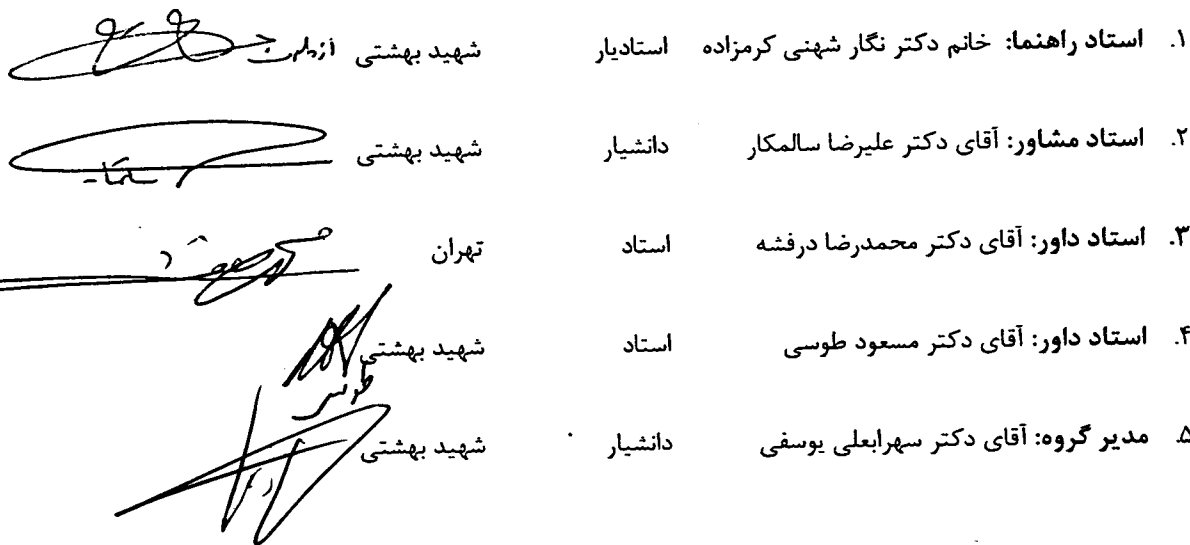 ۱. استاد راهنما: خانم دکتر نگار شهنی کرمزاده استادیار شهید بهشتی
۲. استاد مشاور: آقای دکتر علیرضا سالمکار دانشیار شهید بهشتی
۳. استاد داور: آقای دکتر محمدرضا درفشه استاد تهران
۴. استاد داور: آقای دکتر مسعود طوسی استاد شهید بهشتی
طوسی
۵. مدیر گروه: آقای دکتر سهرابعلی یوسفی دانشیار شهید بهشتی